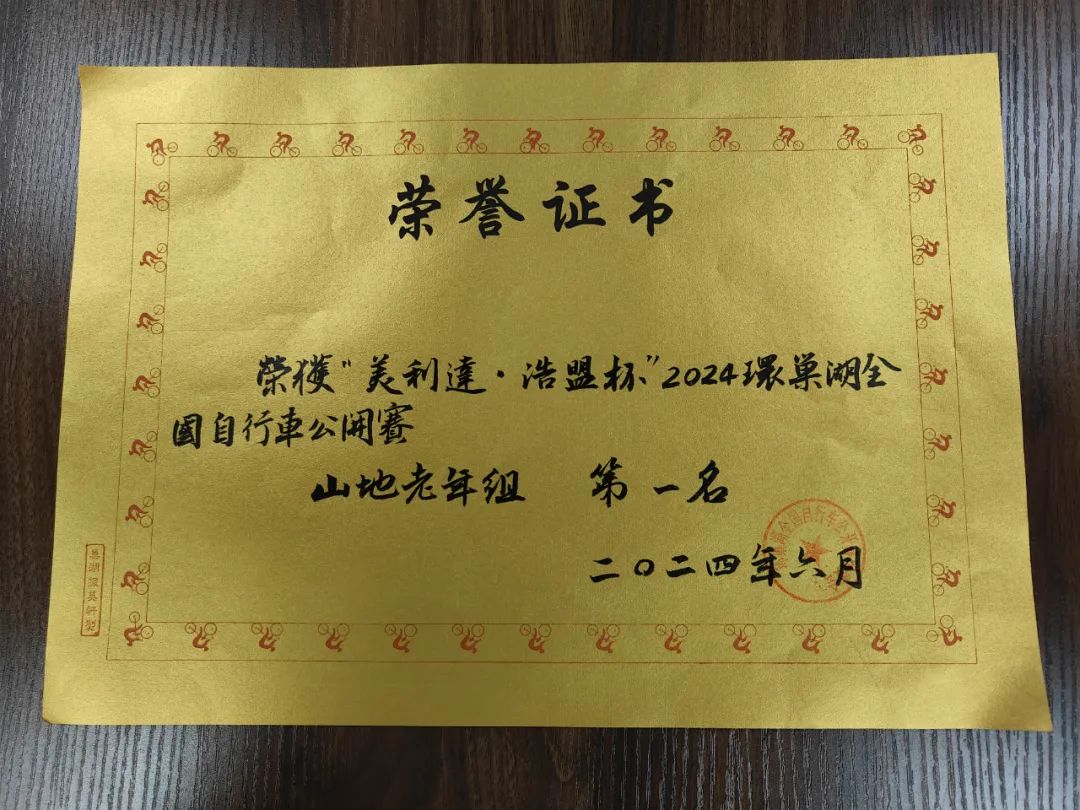 荣誉证书
榮獲“美利達·浩盟杯”2024環巢湖全
國自行車公開賽
山地老年组 第一名
二〇二四年六月